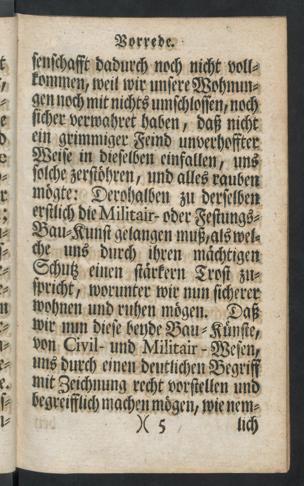 Vorrede.
senschafft dadurch noch nicht voll-
kommen, weil wir unsere Wohnun-
gen noch mit nichts umschlossen, noch
sicher verwahret haben, daß nicht
ein grimmiger Feind unverhoffter
Weise in dieselben einfallen, uns
solche zerstöhren, und alles rauben
mögte: Derohalben zu derselben
erstlich die Militair- oder Festungs-
Bau-Kunst gelangen muß, als wel-
che uns durch ihren mächtigen
Schutz einen stärkern Trost zu-
spricht, worunter wir nun sicherer
wohnen und ruhen mögen. Daß
wir nun diese beyde Bau-Künste,
von Civil- und Militair-Wesen,
uns durch einen deutlichen Begriff
mit Zeichnung recht vorstellen und
begreifflich machen mögen, wie nem-
)( 5 lich